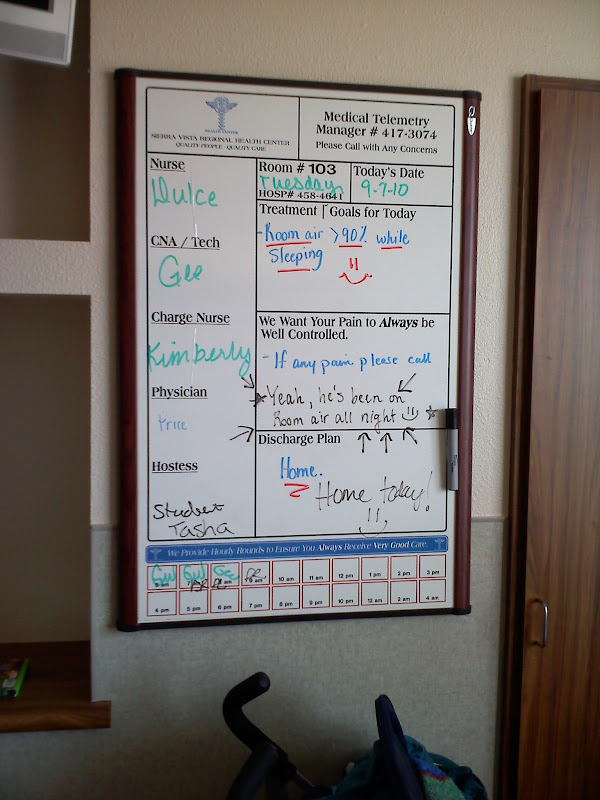 HEALTH CENTER
SIERRA VISTA REGIONAL HEALTH CENTER
QUALITY PEOPLE · QUALITY CARE
Medical Telemetry
Manager # 417-3074
Please Call with Any Concerns
Nurse
Dulce
Room # 103
Tuesday
HOSP# 458-4641
Today's Date
9-7-10
CNA / Tech
Gee
Treatment Goals for Today
- Room air >90% while
Sleeping
Charge Nurse
Kimberly
We Want Your Pain to Always be
Well Controlled.
- If any pain please call
Physician
Price
Yeah, he's been on
Room air all night
Hostess
Student
Tasha
Discharge Plan
Home.
Home today!
We Provide Hourly Rounds to Ensure You Always Receive Very Good Care
9 am 10 am 11 am 12 pm 1 pm 2 pm 3 pm
4 pm 5 pm 6 pm 7 pm 8 pm 9 pm 10 pm 12 am 2 am 4 am